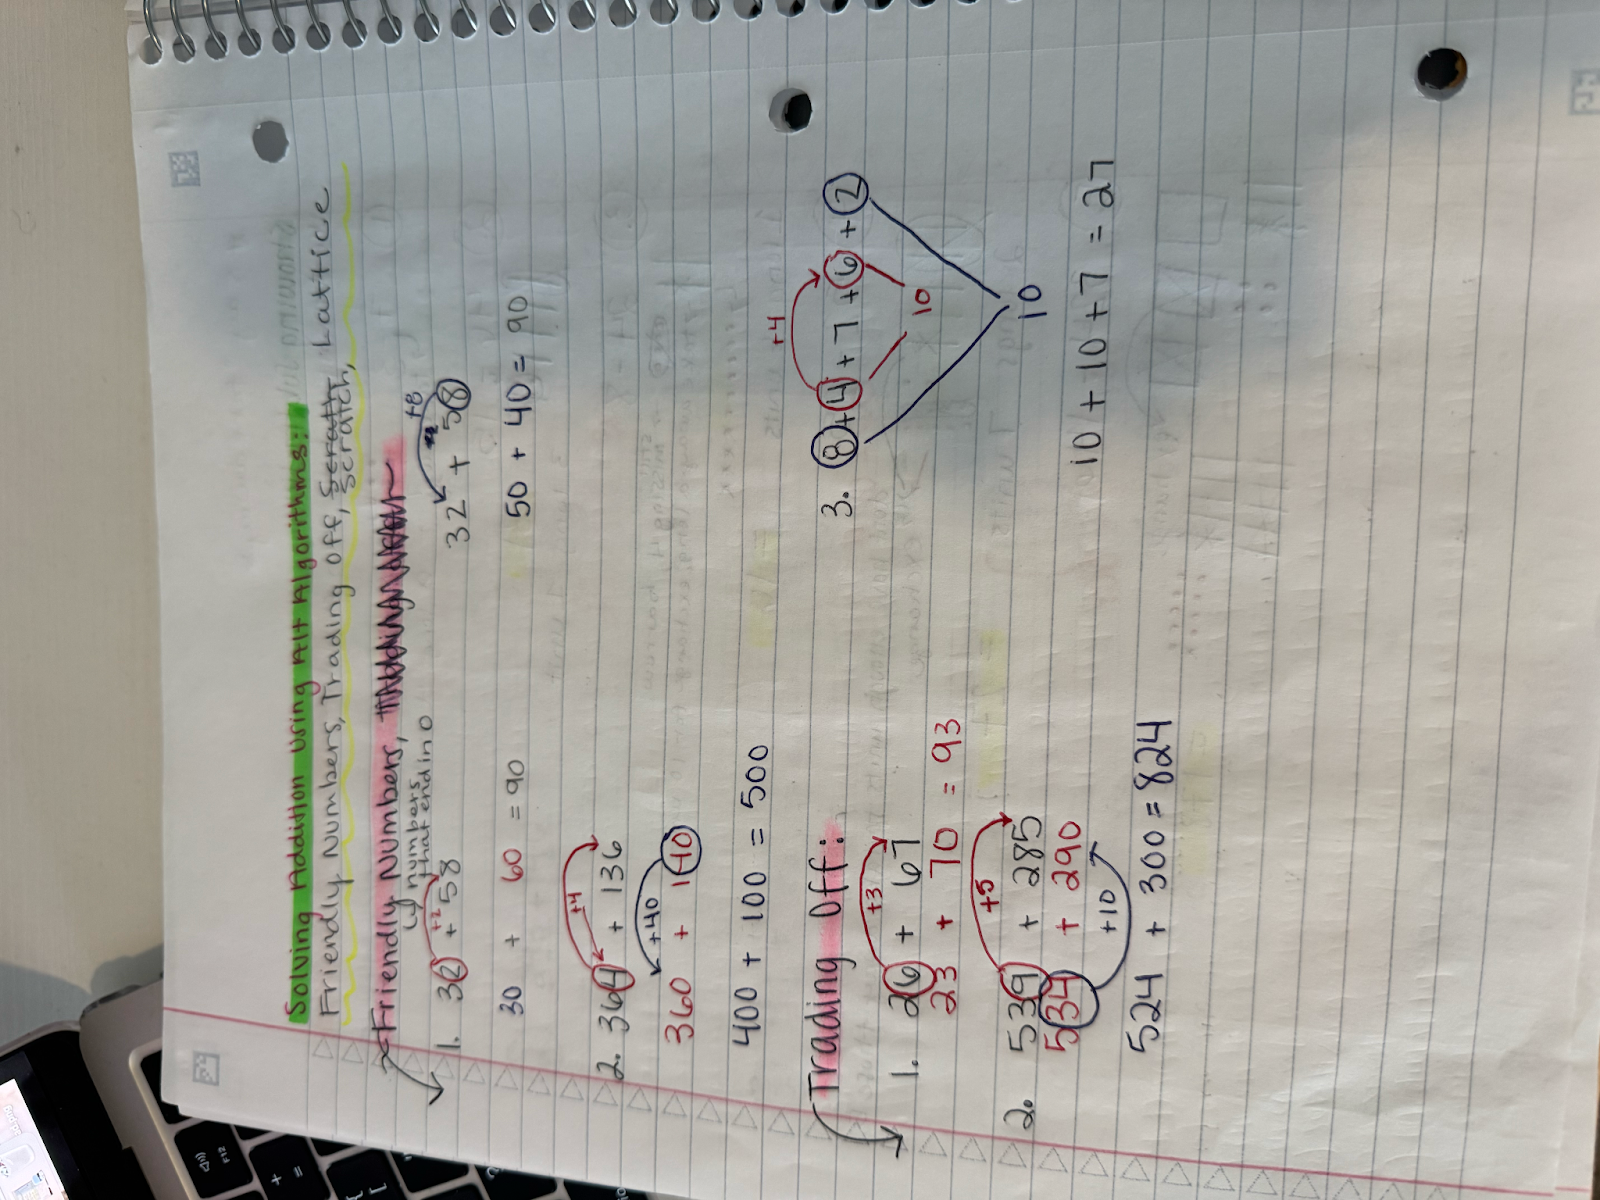 Solving Addition Using Alt Algorithms:
Friendly Numbers, Trading Off, Scratch, Lattice
Friendly Numbers,
↳ numbers that end in 0
1. 32 + 58
+2
30 + 60 = 90
32 + 58
+8
50 + 40 = 90
2. 364 + 136
+4
360 + 140
+40
400 + 100 = 500
3. 8 + 4 + 7 + 6 + 2
+4
10
10
10 + 10 + 7 = 27
Trading Off:
1. 26 + 67
+3
23 + 70 = 93
2. 539 + 285
+5
534 + 290
+10
524 + 300 = 824
F12
+
=
{
[